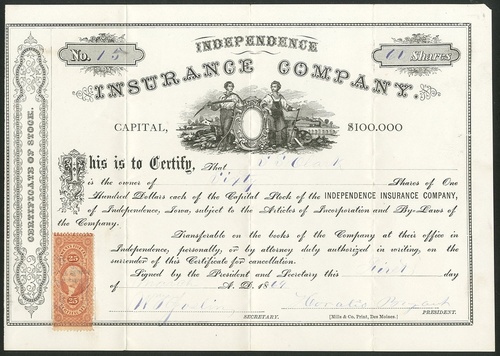 INDEPENDENCE
No. 15
Shares
INSURANCE COMPANY.
CAPITAL, $100,000
CERTIFICATE OF STOCK.
This is to Certify, That
is the owner of Fifty Shares of One
Hundred Dollars each of the Capital Stock of the INDEPENDENCE INSURANCE COMPANY,
of Independence, Iowa, subject to the Articles of Incorporation and By-Laws of
the Company.
Transferable on the books of the Company at their office in
Independence, personally, or by attorney duly authorized in writing, on the
surrender of this Certificate for cancellation.
Signed by the President and Secretary this First day
of A. D. 1869
25 25
SECRETARY. [Mills & Co. Print, Des Moines.] PRESIDENT.